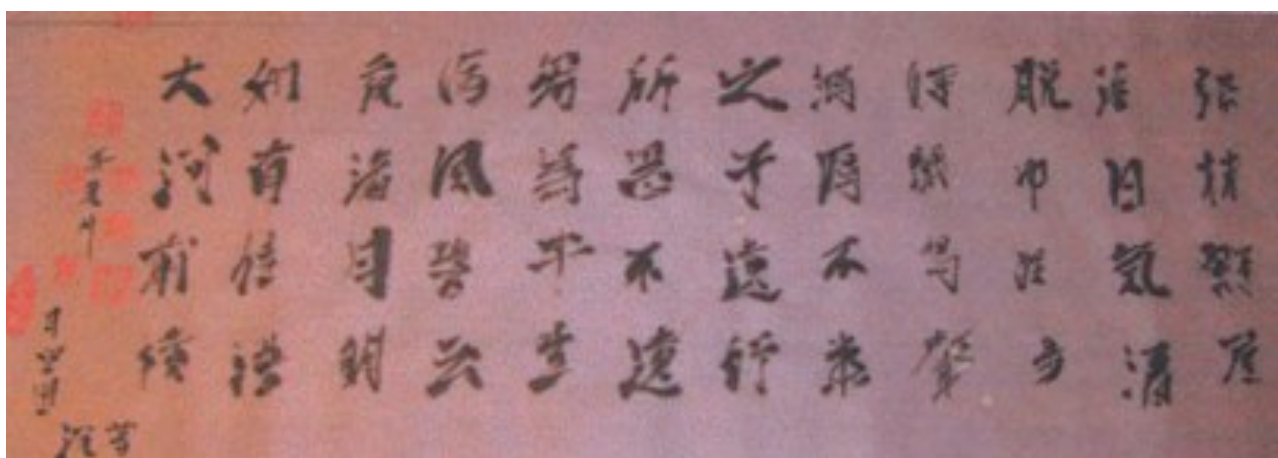 綠林野屋
落日氣清
脱巾獨步
時聞鳥聲
鴻雁不來
之子遠行
所思不遠
若爲平生
海風碧云
夜渚月明
如有佳語
大河前橫